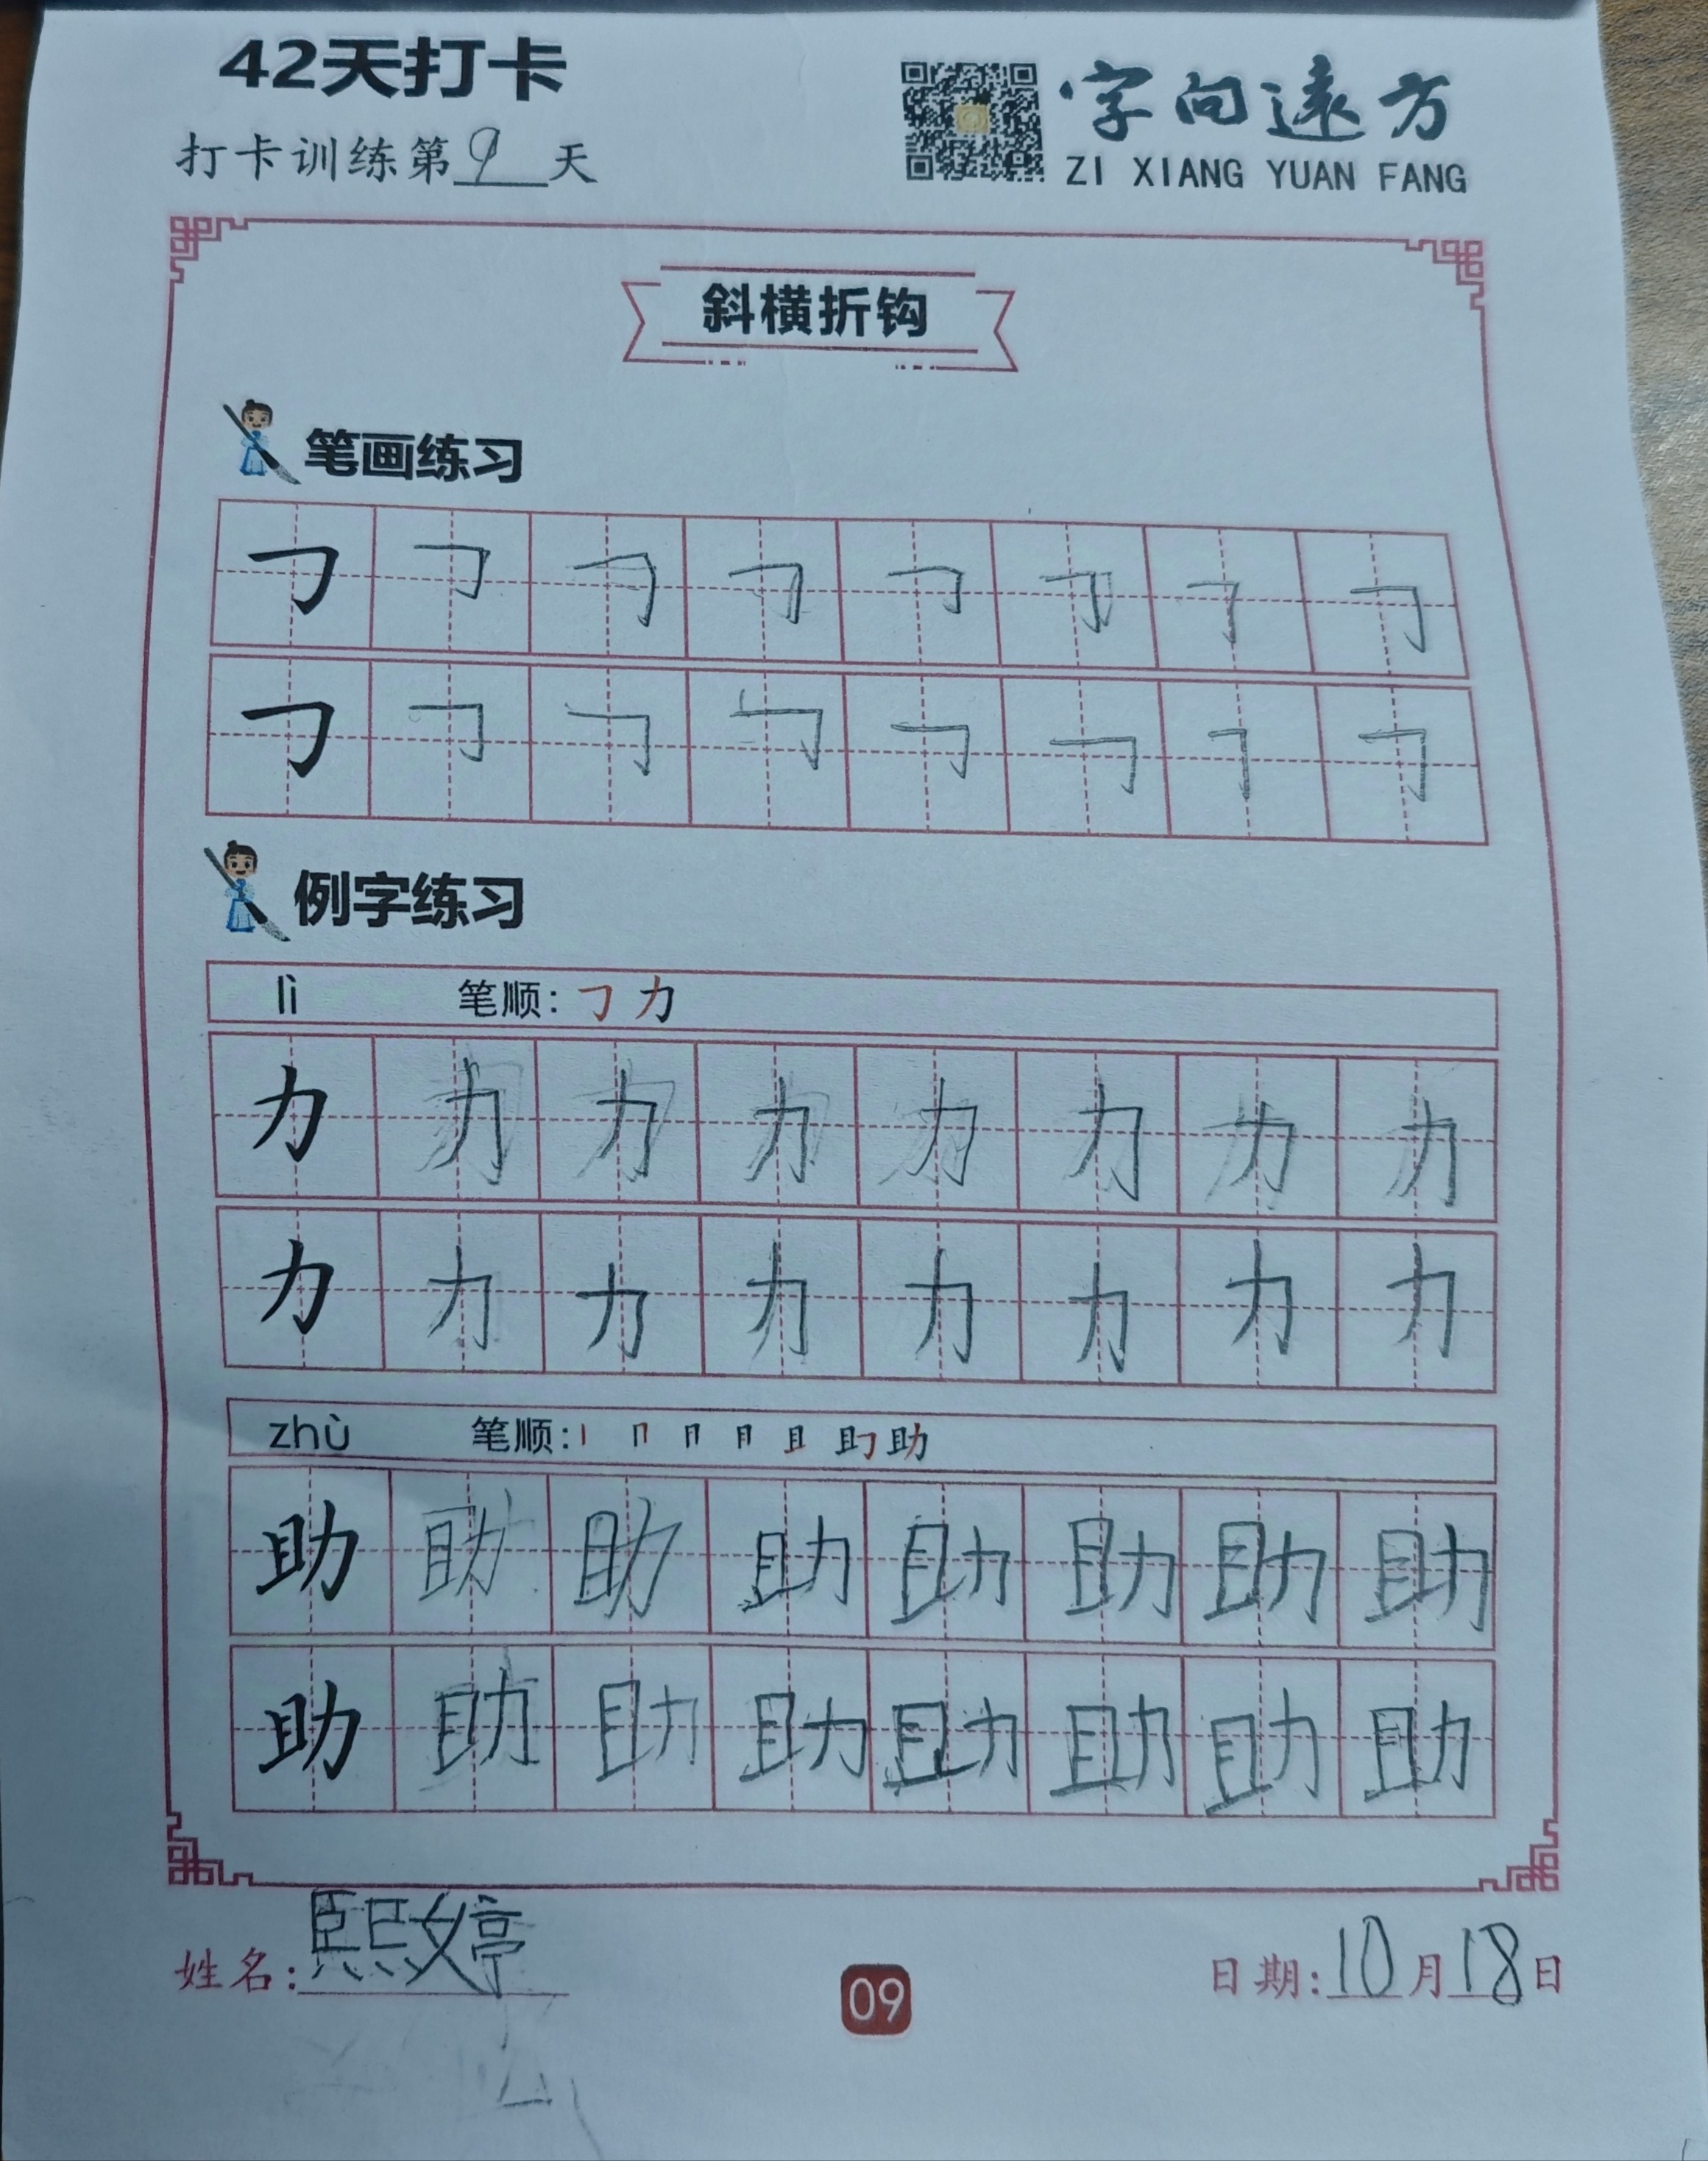 42天打卡
打卡训练第9天
字向遠方
ZI XIANG YUAN FANG
斜横折钩
笔画练习
𠃌 𠃌 𠃌 𠃌 𠃌 𠃌 𠃌 𠃌
𠃌 𠃌 𠃌 𠃌 𠃌 𠃌 𠃌 𠃌
例字练习
lì 笔顺: 𠃌 力
力 力 力 力 力 力 力 力
力 力 力 力 力 力 力 力
zhù 笔顺: 丨 冂 月 月 且 助 助
助 助 助 助 助 助 助 助
助 助 助 助 助 助 助 助
姓名: 熙婷
09
日期: 10月18日